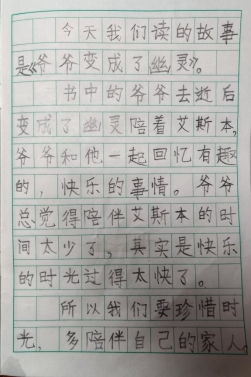 今天我们读的故事
是《爷爷变成了幽灵》。
书中的爷爷去逝后
变成了幽灵陪着艾斯本,
爷爷和他一起回忆有趣
的,快乐的事情。爷爷
总觉得陪伴艾斯本的时
间太少了,其实是快乐
的时光过得太快了。
所以我们要珍惜时
光,多陪伴自己的家人。